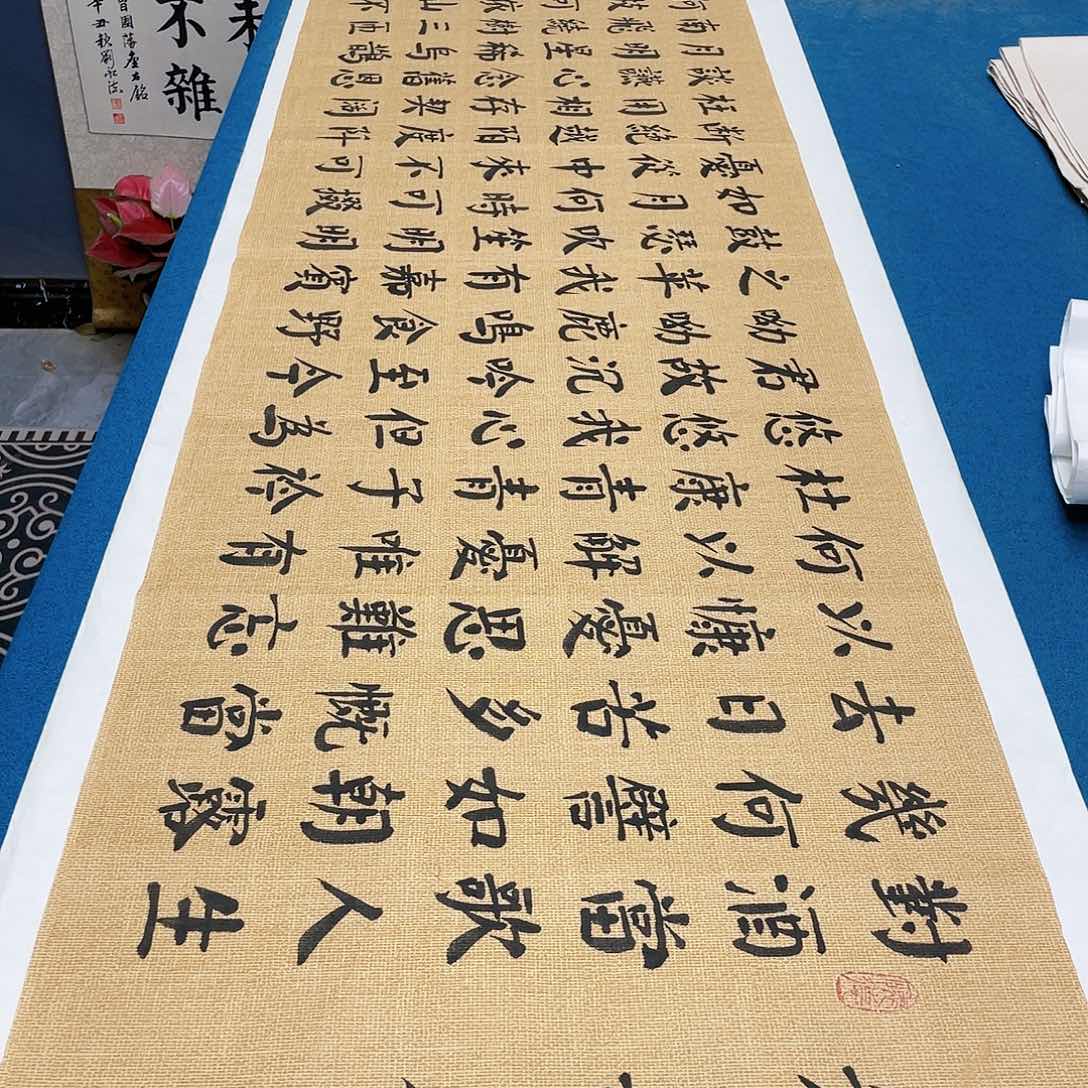 對酒當歌人生
幾何譬如朝露
去日苦多慨當
以慷憂思難忘
何以解憂唯有
杜康青青子衿
悠悠我心但為
君故沉吟至今
呦呦鹿鳴食野
之苹我有嘉賓
鼓瑟吹笙明明
如月何時可掇
憂從中來不可
斷絕越陌度阡
枉用相存契闊
談讌心念舊恩
月明星稀烏鵲
南飛繞樹三匝
何枝可依山不
不雜